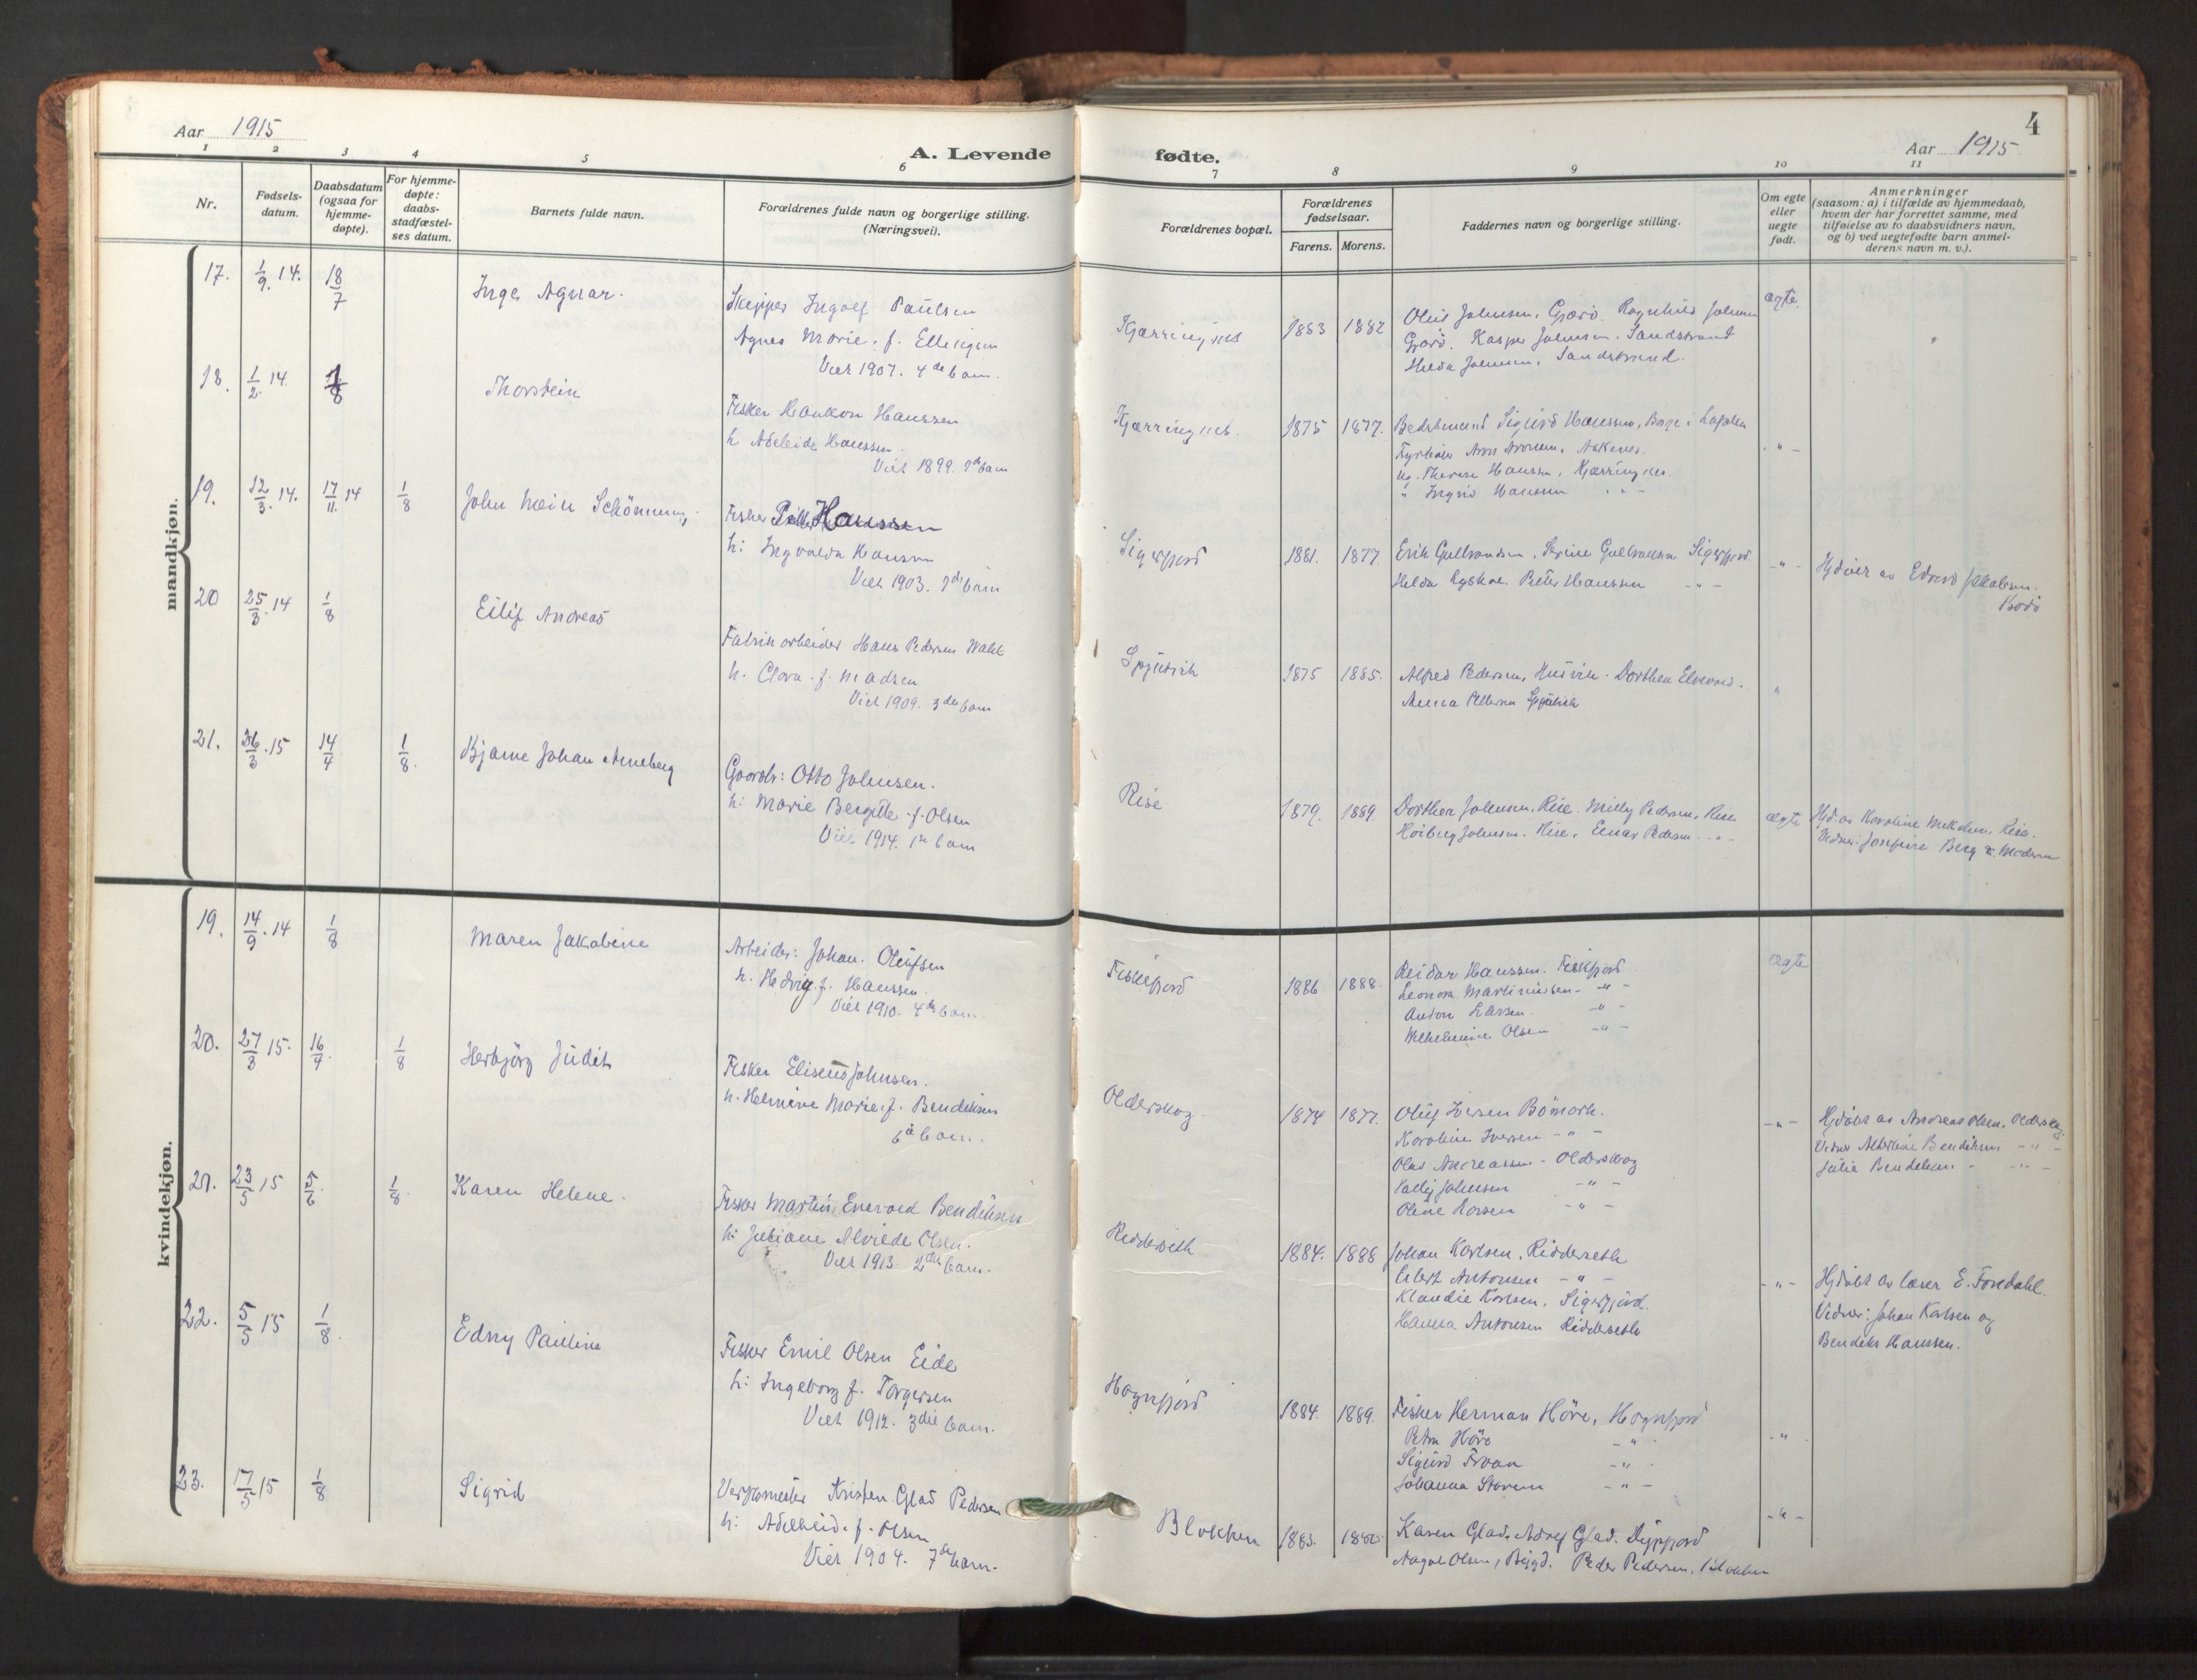 Aar 1915
A. Levende
fødte.
4
Aar 1915
1 2 3 4 5 6 7 8 9 10 11
Nr.
Fødsels-
datum.
Daabsdatum
(ogsaa for
hjemme-
døpte).
For hjemme-
døpte:
daabs-
stadfæstel-
ses datum.
Barnets fulde navn.
Forældrenes fulde navn og borgerlige stilling.
(Næringsvei).
Forældrenes bopæl.
Forældrenes
fødselsaar.
Farens. Morens.
Faddernes navn og borgerlige stilling.
Om egte
eller
uegte
født.
Anmerkninger
(saasom: a) i tilfælde av hjemmedaab,
hvem der har forrettet samme, med
tilføielse av to daabsvidners navn,
og b) ved uegtefødte barn anmel-
derens navn m. v.).
mandkjøn.
17. 1/9. 14. 18/7 Inge Agnar.
Skipper Ingolf Paulsen
Agnes Marie. f. Ellingsen
Viet 1907. 4de barn.
Kjærringnes 1883 1882
Oluf Johnsen, Gjærö. Ragnhild Johnsen
Gjærö. Kasper Johnsen. Sandstrand
Hilda Johnsen, Sandstrand.
ægte
18. 1/2. 14. 1/8 Thorstein
Fisker Haakon Hanssen
h. Adeleide Hanssen.
Viet 1899. 7de barn
Kjærringnes. 1875 1877.
Sigurd Hanssen, Borge i Lofoten
Therese Hanssen, Kjærringnes.
" Ingrid Hanssen - " -
- " -
19. 12/3. 14. 17/11. 14 1/8 John Mein Schönning,
Fisker Hanssen
h: Ingvalda Hansen
Viet 1903. 7de barn
Sigerfjord 1881. 1877.
Erik Gulbrandsen, Serine Gulbrandsen Sigerfjord
Hilda Lyskær. Peter Hanssen - " -
- " -
Hjdöbt av Edvard Jakobsen.
Bodö
20 25/3. 14 1/8 Eilif Andreas
Fabrikarbeider Hans Pedersen Wahl
h. Clara. f. Madsen
Viet 1909. 3die barn
Spjutvik 1875 1885.
Alfred Pedersen, Husvik. Dorthea Elvevold.
Anna Pettersen Spjutvik
"
21. 26/3. 15 14/4. 1/8. Bjarne Johan Arneberg
Gaardbr: Otto Johnsen.
h: Marie Bergitte. f. Olsen
Viet 1914. 1ste barn
Rise 1879. 1889.
Dorthea Johnsen. Rise. Milly Pedersen, Rise
Höiberg Johnsen. Rise, Einar Pedersen - " -
ægte
Hjd. av Karoline Mikalsen, Rise.
Vidner: Josefine Berg
kvindekjøn.
19. 14/9. 14 1/8 Maren Jakobine
Arbeider: Johan. Olufsen
h. Hedvig. f. Hanssen.
Viet 1910. 4de barn.
Fiskefjord 1886 1888.
Reidar Hanssen. Fiskfjord
Leonora Martinussen - " -
Anton Larsen. - " -
Wilhelmine Olsen - " -
ægte
20. 27/3 15. 16/4. 1/8 Herbjörg Judit
Fisker Eliseus Johnsen.
h. Helmine Marie. f. Bendiksen
6te barn.
Olderskog. 1874 1877.
Oluf Iversen Bömark.
Karoline Iversen - " -
Olav Andreassen - Olderskog
Valley Johnsen - " -
Oline Larsen - " -
- " -
Hjdöbt av Andreas Olsen, Olderskog.
Vidner Albertine Bendiksen - " -
Julie Bendiksen - - " -
21. 23/5 15 5/6. 1/8. Karen Helene.
Fisker Martin Enevold Bendiksen
h: Juliane Alvilde Olsen.
Viet 1913. 2det barn.
Ridderseth 1884. 1888
Johan Karlsen. Ridderseth
Eilert Antonsen - " -
Klaudie Karlsen. Sigerfjord.
Hanna Antonsen Ridderseth
- " -
Hjdöbt av lærer E. Forsdahl.
Vidner: Johan Karlsen og
Bendiks Hanssen.
22. 5/5 15 1/8. Edny Pauline
Fisker Emil Olsen Eide
h: Ingeborg f. Torgersen
Viet 1912. 3die barn.
Hognfjord 1884. 1889.
Fisker Herman Höve, Hognfjord
Petra Höve - " -
Sigurd Troan - " -
Johanna Storem - " -
- " -
23. 17/5 15 1/8 Sigrid
Kristen Glad Pedersen
h: Adelheid. f. Olsen
Viet 1904. 7de barn.
Blokken 1883. 1882.
Karen Glad. Adolf Glad. Djupfjord
Aagot Olsen, Bygd. Peder Pedersen, Blokken
- " -